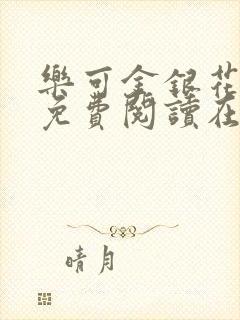 樂可金銀花
免費閱讀在
晴月